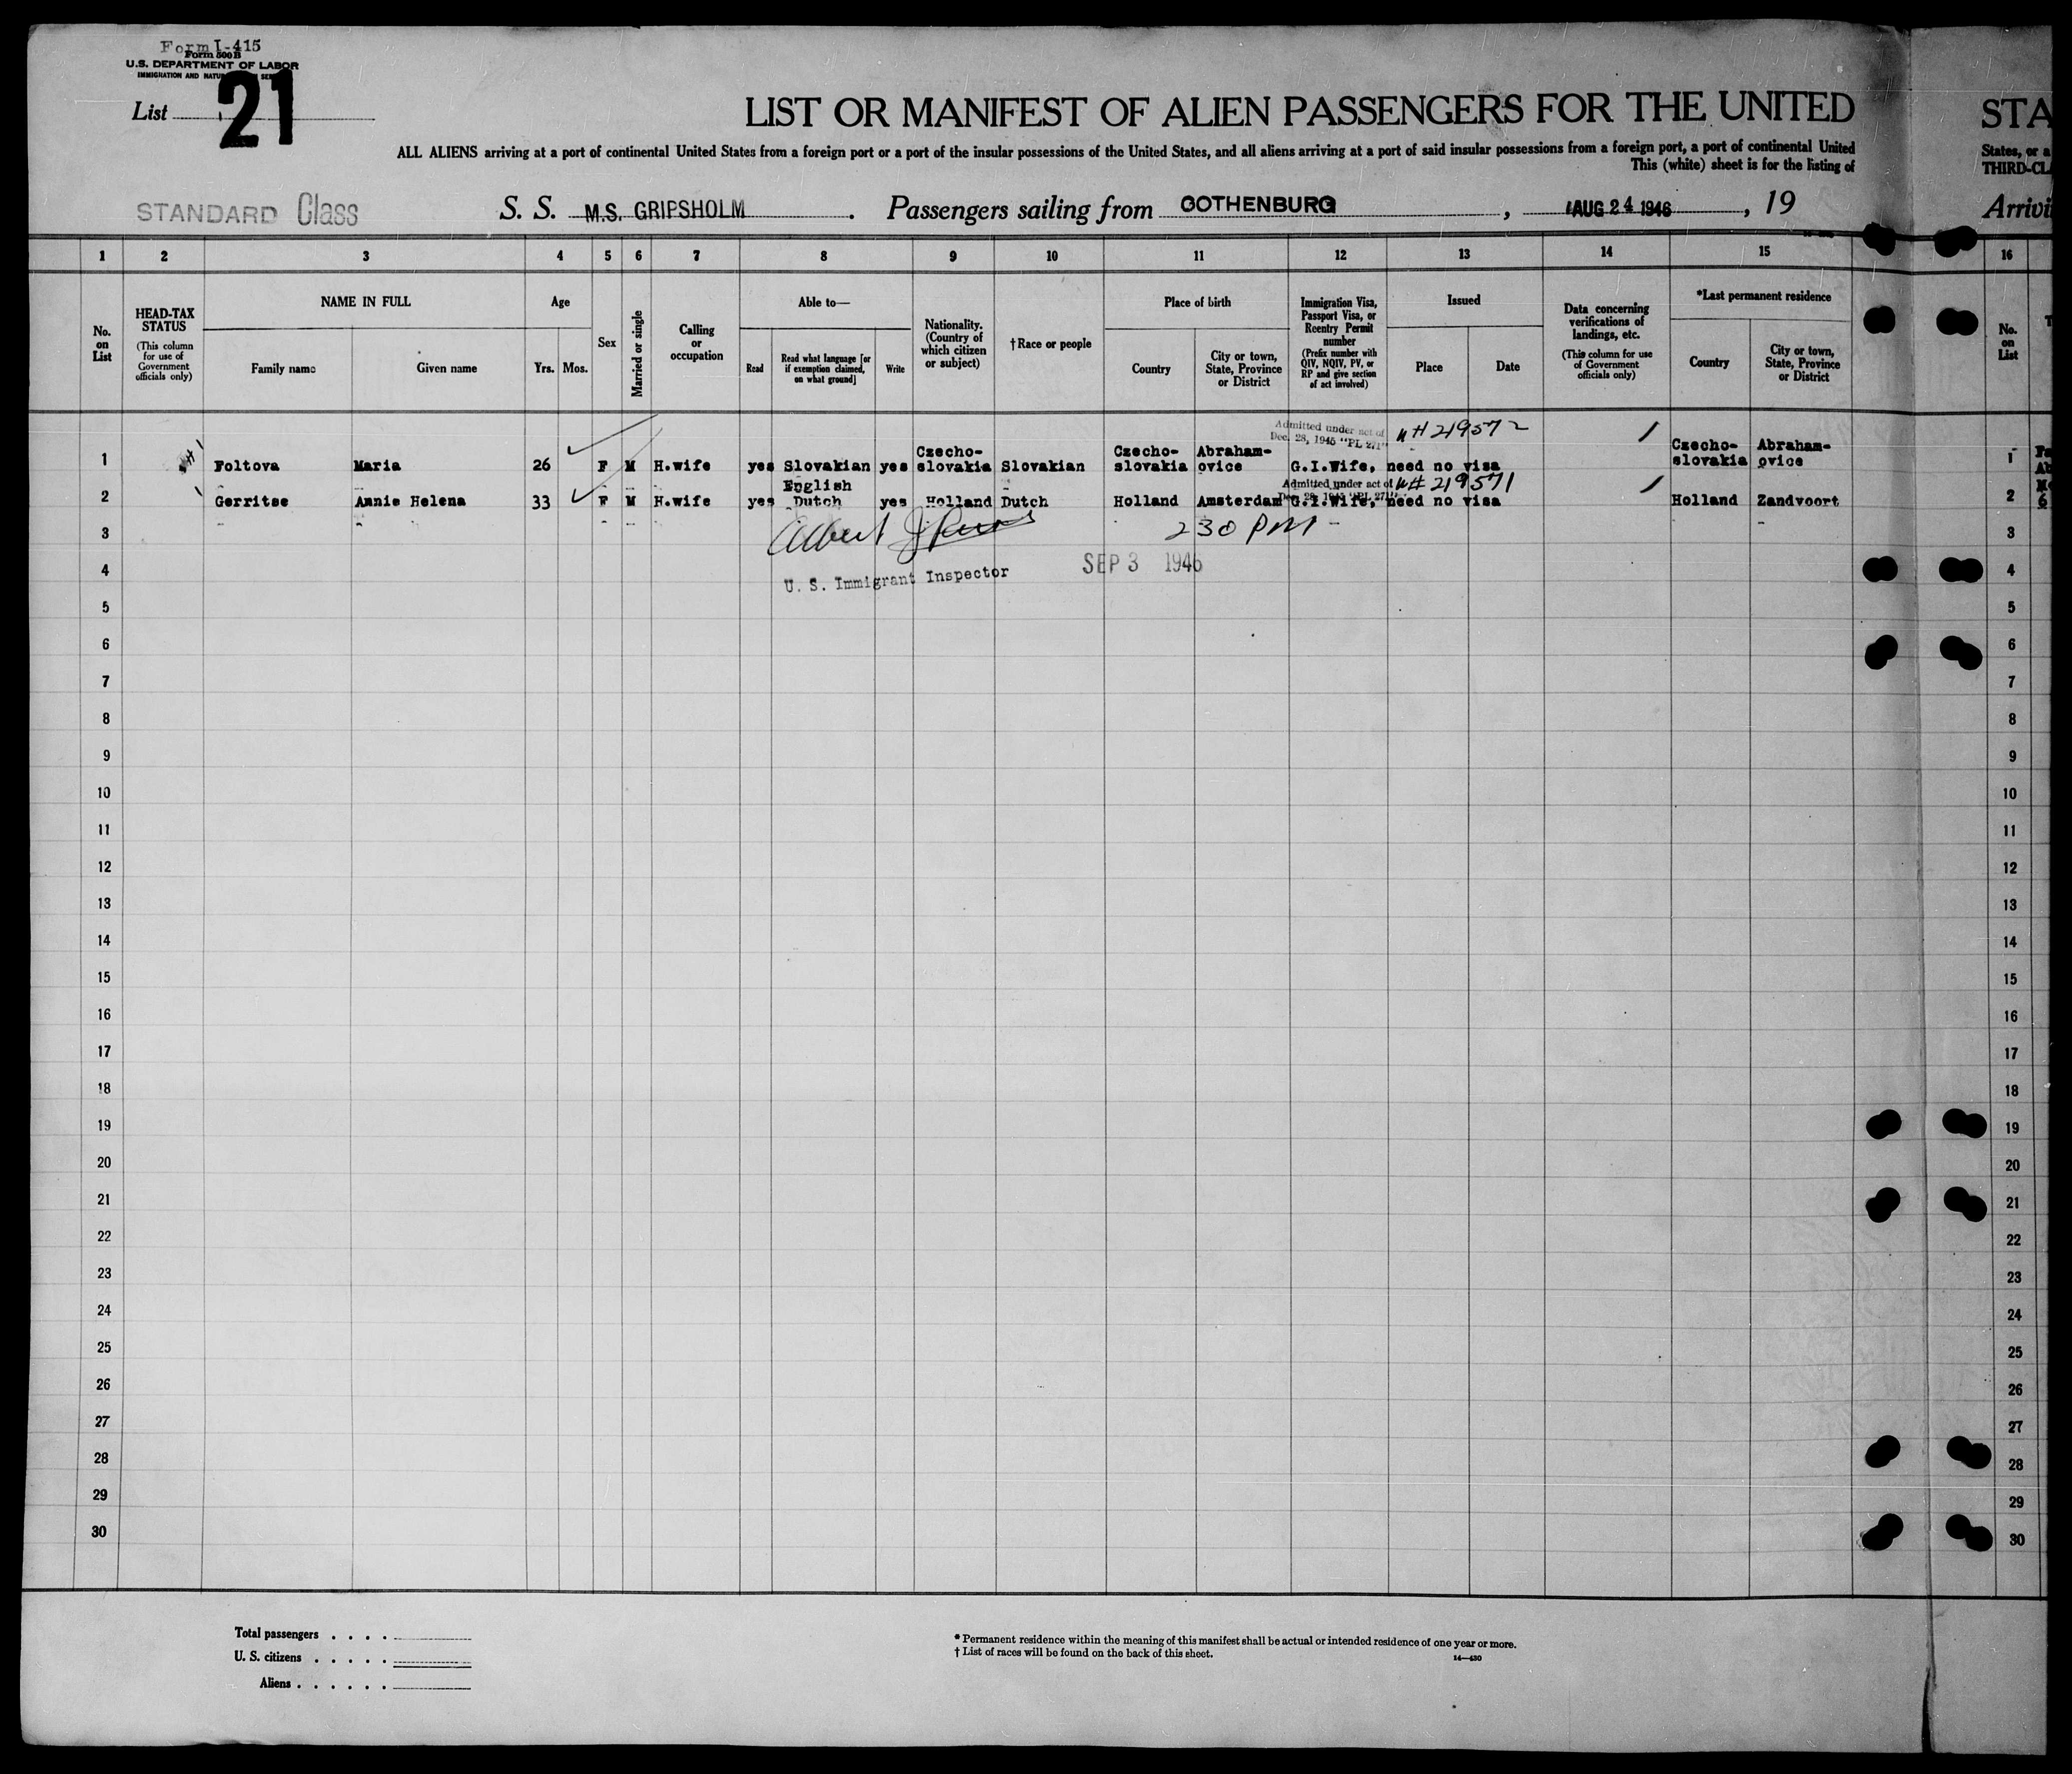 Form I-415
Form 500 B
U.S. DEPARTMENT OF LABOR
IMMIGRATION AND
List 21
LIST OR MANIFEST OF ALIEN PASSENGERS FOR THE UNITED
STA
ALL ALIENS arriving at a port of continental United States from a foreign port or a port of the insular possessions of the United States, and all aliens arriving at a port of said insular possessions from a foreign port, a port of continental United
States, or a
This (white) sheet is for the listing of
THIRD-CL
STANDARD Class S. S. M.S. GRIPSHOLM . Passengers sailing from GOTHENBURG , AUG 24 1946 , 19
Arrivi
1 2 3 4 5 6 7 8 9 10 11 12 13 14 15 16
No. on List
HEAD-TAX STATUS
(This column for use of Government officials only)
NAME IN FULL
Family name Given name
Age
Yrs. Mos.
Sex
Married or single
Calling or occupation
Able to—
Read
Read what language [or if exemption claimed, on what ground]
Write
Nationality. (Country of which citizen or subject)
†Race or people
Place of birth
Country
City or town, State, Province or District
Immigration Visa, Passport Visa, or Reentry Permit number
(Prefix number with QIV, NQIV, PV, or RP and give section of act involved)
Issued
Place Date
Data concerning verifications of landings, etc.
(This column for use of Government officials only)
*Last permanent residence
Country
City or town, State, Province or District
No. on List
Admitted under act of
Dec. 28, 1945 "PL 271" # 219572
Czecho- Czecho- Abraham- Czecho- Abraham-
1 Foltova Maria 26 F M H.wife yes Slovakian yes slovakia Slovakian slovakia ovice G.I.Wife, need no visa slovakia ovice 1
English Admitted under act of # 219571
Dec. 28, 1945 "PL 271"
2 Gerritse Annie Helena 33 F M H.wife yes Dutch yes Holland Dutch Holland Amsterdam G.I.Wife, need no visa Holland Zandvoort 2
3 Albert J 230 PM 3
4 SEP 3 1946 4
U. S. Immigrant Inspector
5 5
6 6
7 7
8 8
9 9
10 10
11 11
12 12
13 13
14 14
15 15
16 16
17 17
18 18
19 19
20 20
21 21
22 22
23 23
24 24
25 25
26 26
27 27
28 28
29 29
30 30
Total passengers . . . .
U. S. citizens . . . . .
Aliens . . . . . .
* Permanent residence within the meaning of this manifest shall be actual or intended residence of one year or more.
† List of races will be found on the back of this sheet.
14—430